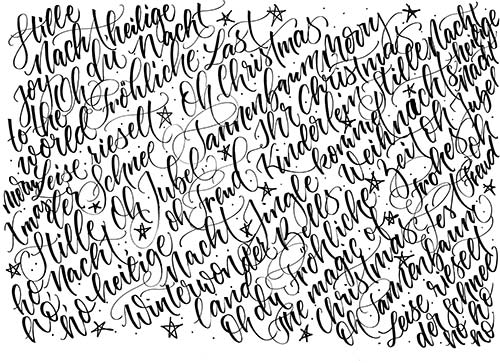 Stille Nacht heilige Nacht
Joy to the world
Oh du Fröhliche
Last Christmas
Oh Tannenbaum
Merry Christmas
Merry Xmas
Leise rieselt der Schnee
Oh Jubel oh Freud
Ihr Kinderlein kommet
Stille Nacht heilige Nacht
Weihnachtszeit
Oh Jubel oh Freud
Stille Nacht heilige Nacht
Jingle Bells
Frohes Fest
ho ho ho
Winterwonderland
Oh du Fröhliche
The magic of Christmas
oh Tannenbaum
Leise rieselt der Schnee
ho ho ho